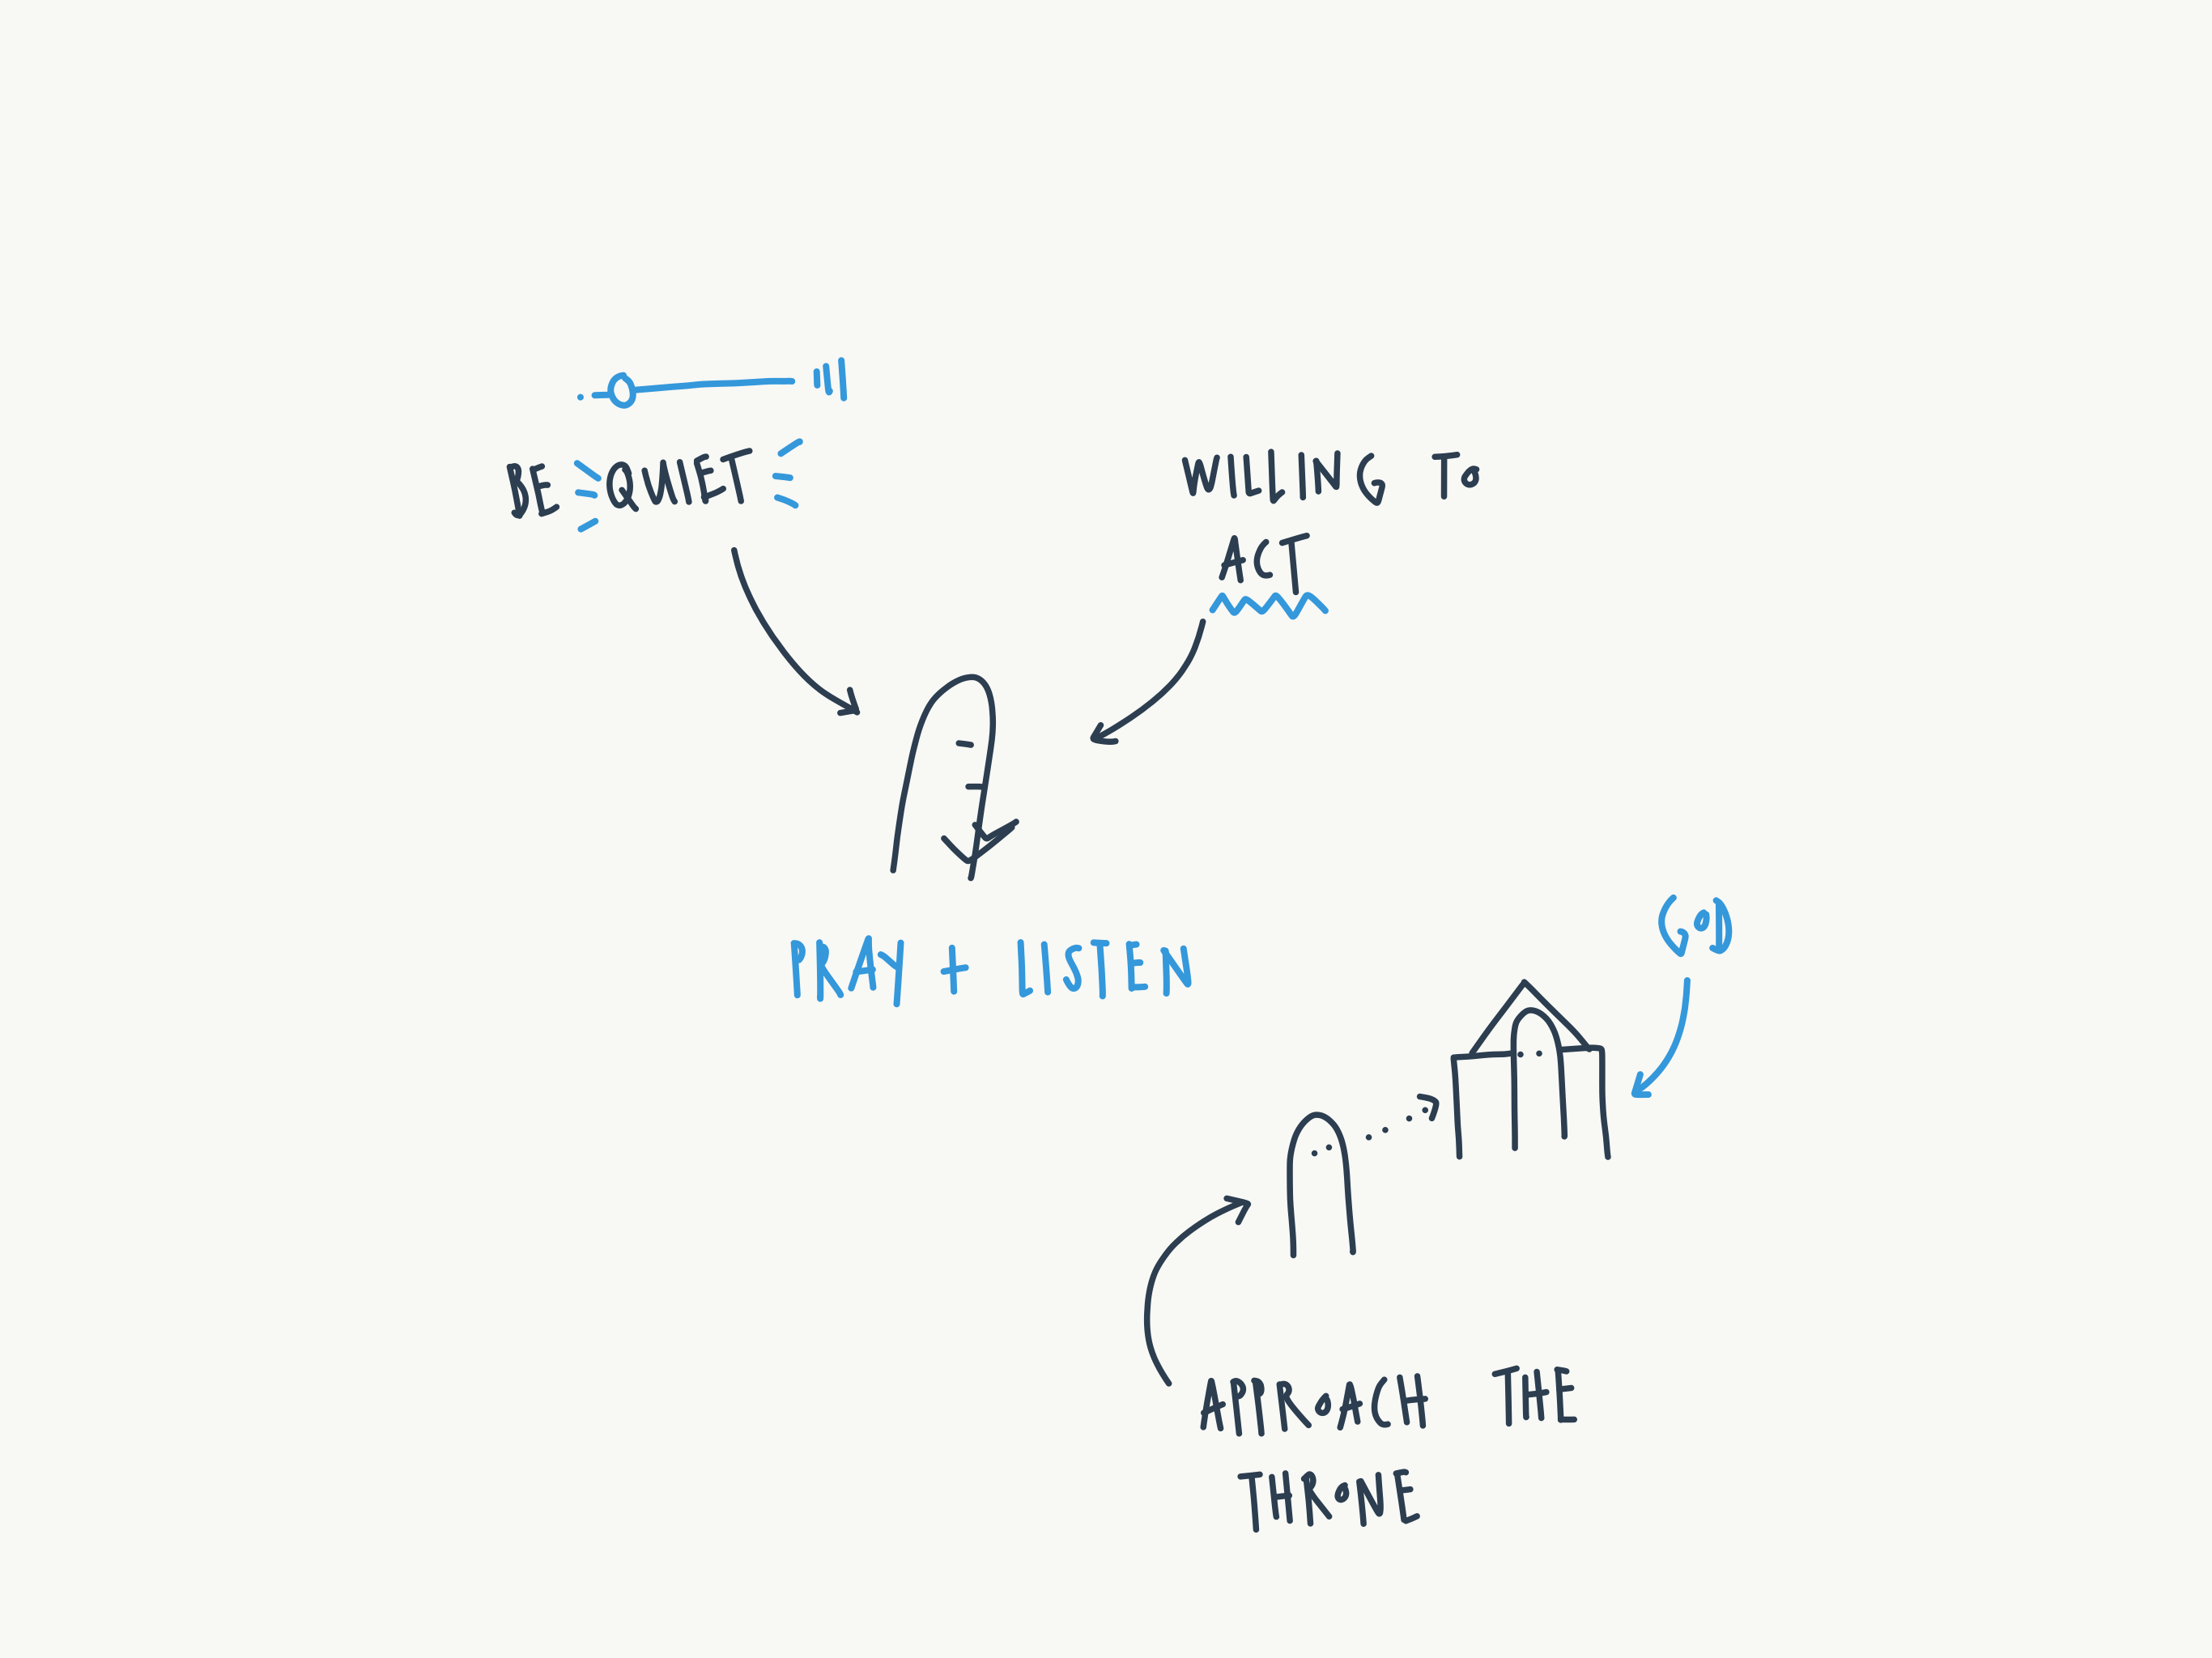 BE QUIET
WILLING TO
ACT
PRAY + LISTEN
GOD
APPROACH THE
THRONE